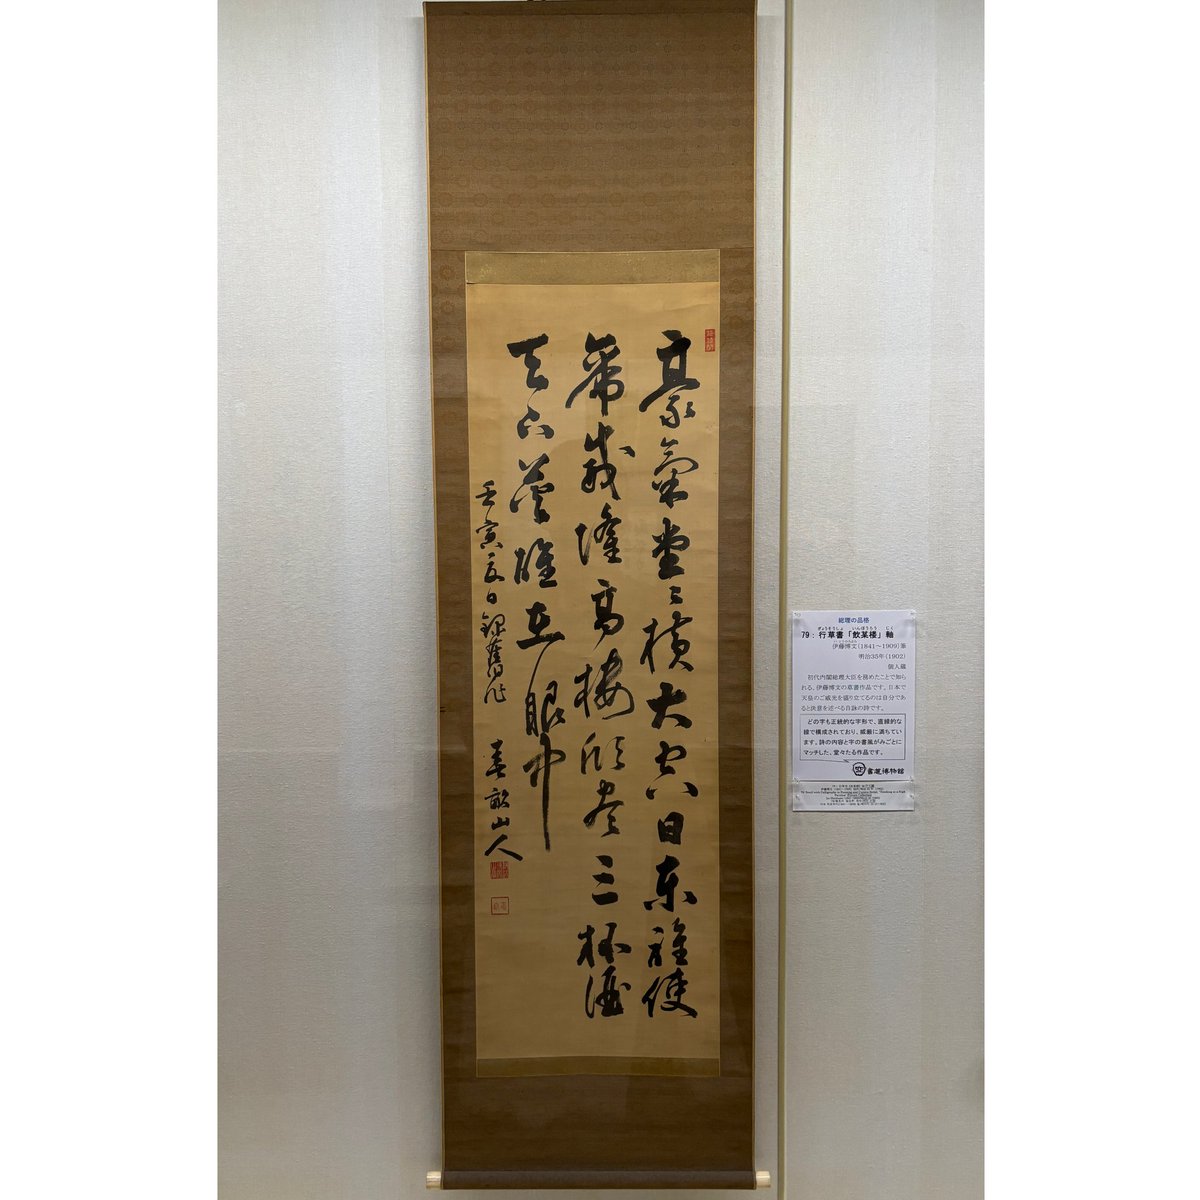 豪氣堂〻横大空日東誰使
帝威隆高樓傾盡三杯酒
天下英雄在眼中
壬寅夏日録舊作
春畝山人
総理の品格
79：行草書「飲某楼」軸
ぎょうそうしょ いんぼうろう じく
伊藤博文(1841～1909)筆
明治35年(1902)
個人蔵
初代内閣総理大臣を務めたことで知ら
れる、伊藤博文の草書作品です。日本で
天皇のご威光を盛り立てるのは自分であ
ると決意を述べる自詠の詩です。
どの字も正統的な字形で、直線的な
線で構成されており、威厳に満ちてい
ます。詩の内容と字の書風がみごとに
マッチした、堂々たる作品です。
書道博物館